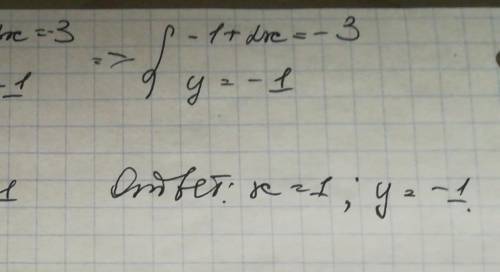 x = -3 => { -1 + 2x = -3
-1 y = -1
1 Ответ: x = 1; y = -1.